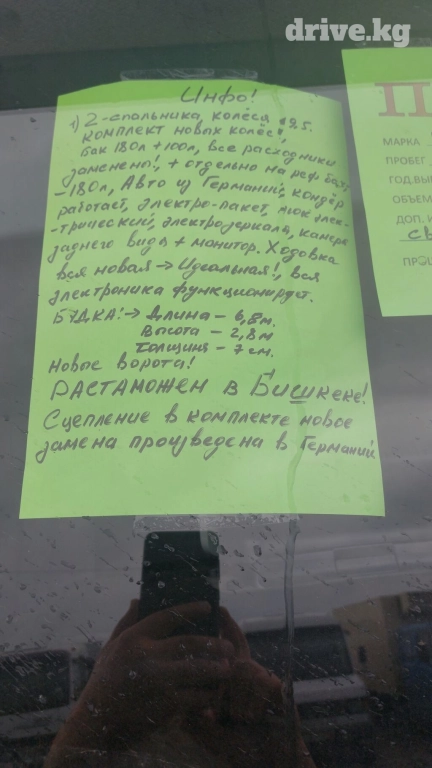 drive.kg
Инфо!
1) 2-спальника, колёса 19.5.
комплект новых колёс!,
бак 180л + 100л, все расходники
заменены!, + отдельно на реф бак,
- 180л, Авто из Германий, кондёр
работает, электро-пакет, люк элек-
-трический, электрозеркала, камера
заднего вида + монитор. Ходовка
вся новая → Идеальная!, вся
электроника функционирует.
БУДКА! → Длина - 6,8м.
Высота - 2,8м
Толщина - 7 см.
Новые ворота!
РАСТАМОЖЕН в Бишкеке!
Сцепление в комплекте новое
замена произведена в Германий
П
МАРКА
ПРОБЕГ
ГОД.ВЫ
ОБЪЕМ
ДОП. И
св